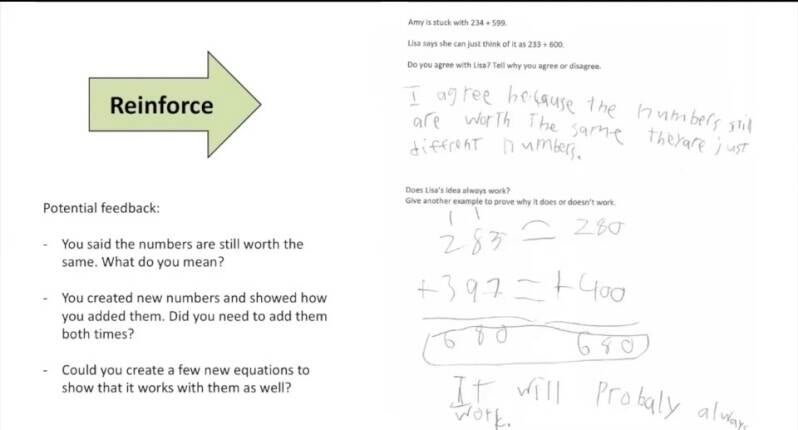 Reinforce
Potential feedback:
- You said the numbers are still worth the
same. What do you mean?
- You created new numbers and showed how
you added them. Did you need to add them
both times?
- Could you create a few new equations to
show that it works with them as well?
Amy is stuck with 234 + 599.
Lisa says she can just think of it as 233 + 600.
Do you agree with Lisa? Tell why you agree or disagree.
I agree because the numbers still
are worth the same theyare just
diffrent numbers.
Does Lisa's idea always work?
Give another example to prove why it does or doesn't work.
1 1
283 = 280
+397 = +400
680 680
It will Probaly always
work.